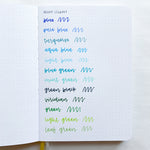 blue
pale blue
turquoise
aqua blue
light blue
blue green
mint green
green black
viridian
green
light green
leaf green